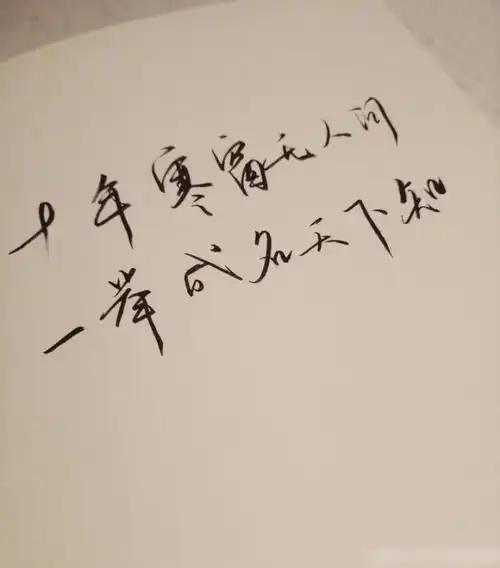 十年寒窗无人问
一举成名天下知